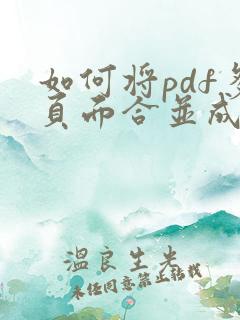 如何将pdf多
页面合并成
温良生米
未经同意禁止转载